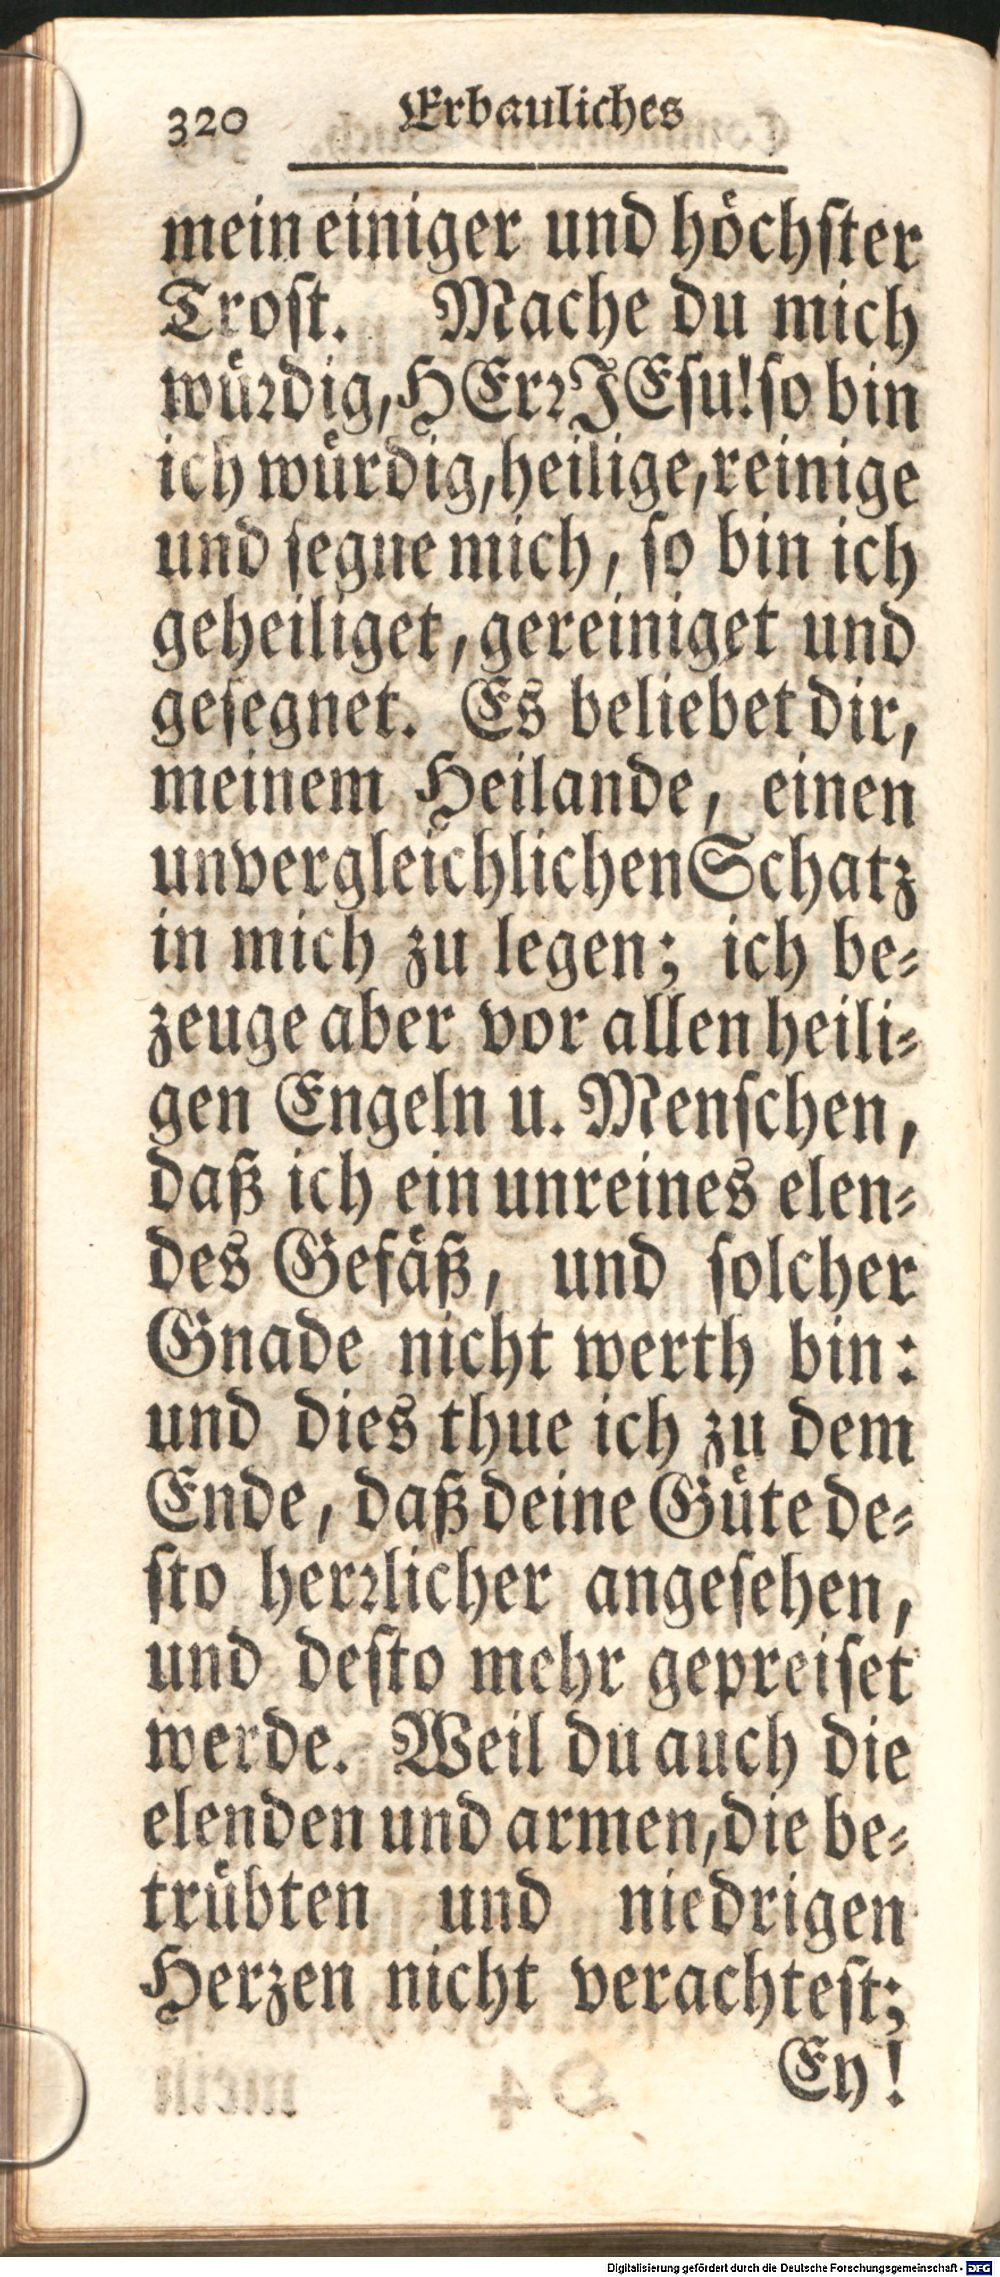 320 Erbauliches
mein einiger und hoͤchſter
Troſt. Mache du mich
wuͤꝛdig, HErꝛ JEſu! ſo bin
ich wuͤrdig, heilige, reinige
und ſegne mich, ſo bin ich
geheiliget, gereiniget und
geſegnet. Es beliebet dir,
meinem Heilande, einen
unvergleichlichen Schatz
in mich zu legen; ich be⸗
zeuge aber vor allen heili⸗
gen Engeln u. Menſchen,
daß ich ein unreines elen⸗
des Gefaͤß, und ſolcher
Gnade nicht werth bin:
und dies thue ich zu dem
Ende, daß deine Guͤte de⸗
ſto herꝛlicher angeſehen,
und deſto mehr gepreiſet
werde. Weil du auch die
elenden und armen, die be⸗
truͤbten und niedrigen
Herzen nicht verachteſt;
Ey!
Digitalisierung gefördert durch die Deutsche Forschungsgemeinschaft - DFG